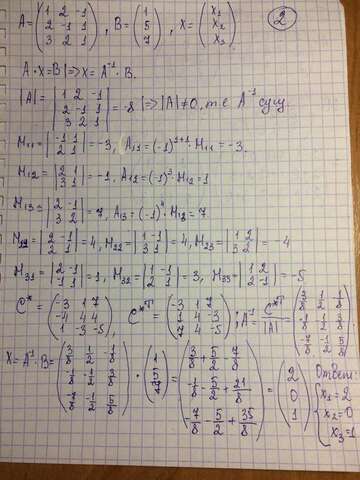 A = (1 2 -1; 2 -1 1; 3 2 1), B = (1; 5; 7), X = (x₁; x₂; x₃) ②
A·X = B |=> X = A⁻¹·B.
|A| = |1 2 -1; 2 -1 1; 3 2 1| = -8 |=> |A| ≠ 0, т.е A⁻¹ сущ.
M₁₁ = |-1 1; 2 1| = -3, A₁₁ = (-1)¹⁺¹·M₁₁ = -3.
M₁₂ = |2 1; 3 1| = -1, A₁₂ = (-1)³·M₁₂ = 1
M₁₃ = |2 -1; 3 2| = 7, A₁₃ = (-1)⁴·M₁₃ = 7
M₂₁ = |2 -1; 2 1| = 4, M₂₂ = |1 -1; 3 1| = 4, M₂₃ = |1 2; 3 2| = -4
M₃₁ = |2 -1; -1 1| = 1, M₃₂ = |1 -1; 2 1| = 3, M₃₃ = |1 2; 2 -1| = -5
C* = (-3 1 7; -4 4 4; 1 -3 -5), C*ᵀ = (-3 -4 1; 1 4 -3; 7 4 -5); A⁻¹ = C*ᵀ/|A| = (3/8 1/2 -1/8; -1/8 -1/2 3/8; -7/8 -1/2 5/8)
X = A⁻¹·B = (3/8 1/2 -1/8; -1/8 -1/2 3/8; -7/8 -1/2 5/8) · (1; 5; 7) = (3/8 + 5/2 - 7/8; -1/8 - 5/2 + 21/8; -7/8 - 5/2 + 35/8) = (2; 0; 1)
Ответ:
{x₁ = 2
x₂ = 0
x₃ = 1